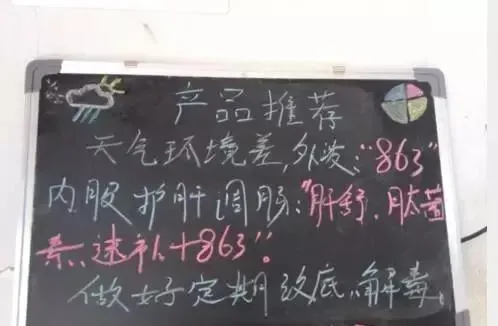 产品推荐
天气环境差,外泼:“863”
内服护肝调肠:“肝舒、肽菌
素、速补+863”。
做好定期改底、解毒。